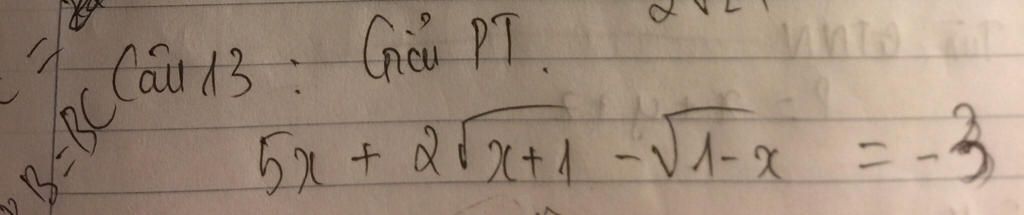 Câu 13 : Giải PT.
5x + 2√(x+1) - √(1-x) = -3
B=BC